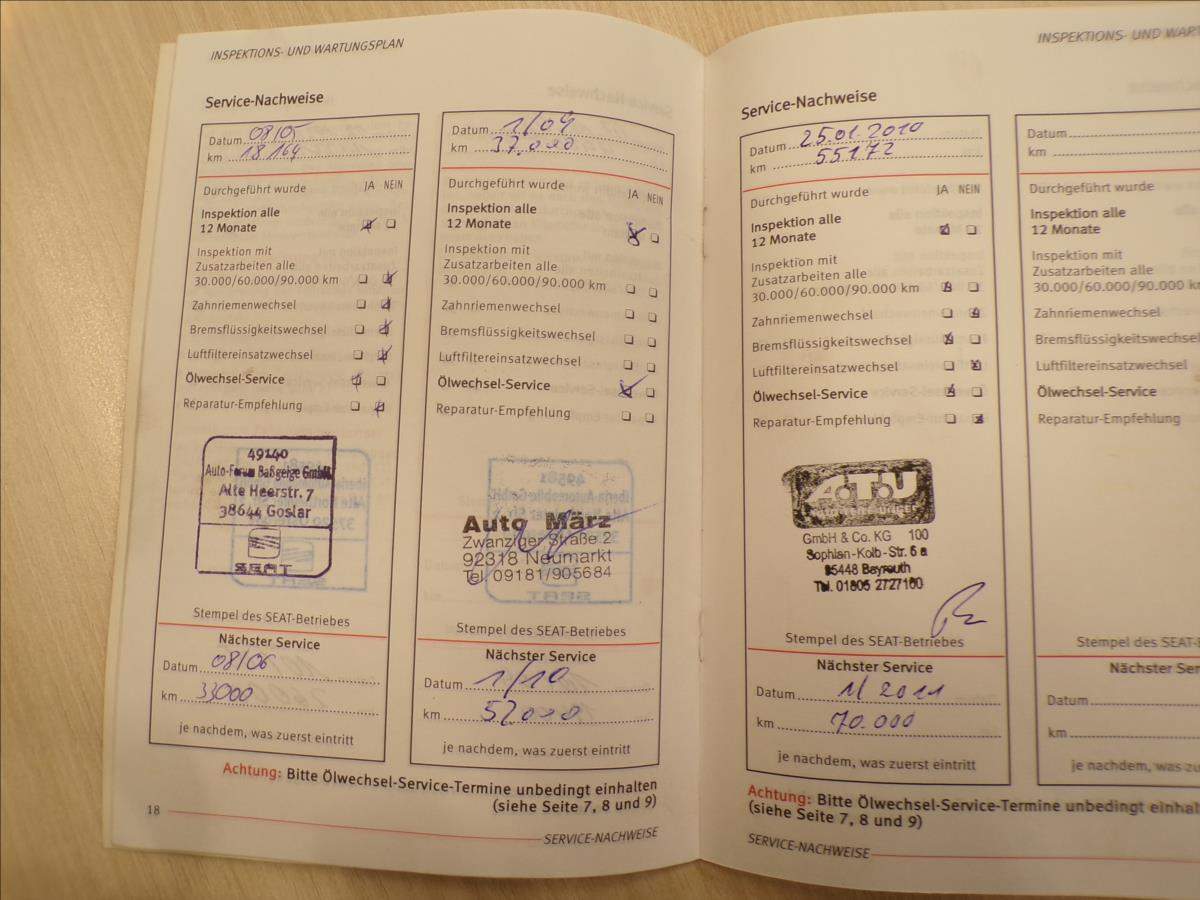 INSPEKTIONS- UND WARTUNGSPLAN
Service-Nachweise
Datum 08/05
km 18164
Durchgeführt wurde JA NEIN
Inspektion alle
12 Monate
Inspektion mit
Zusatzarbeiten alle
30.000/60.000/90.000 km
Zahnriemenwechsel
Bremsflüssigkeitswechsel
Luftfiltereinsatzwechsel
Ölwechsel-Service
Reparatur-Empfehlung
49140
Auto-Forum Baßgeige GmbH
Alte Heerstr. 7
38644 Goslar
SEAT
Stempel des SEAT-Betriebes
Nächster Service
Datum 08/06
km 33000
je nachdem, was zuerst eintritt
Datum 1/09
km 37.000
Durchgeführt wurde JA NEIN
Inspektion alle
12 Monate
Inspektion mit
Zusatzarbeiten alle
30.000/60.000/90.000 km
Zahnriemenwechsel
Bremsflüssigkeitswechsel
Luftfiltereinsatzwechsel
Ölwechsel-Service
Reparatur-Empfehlung
Auto März
Zwanziger Straße 2
92318 Neumarkt
Tel. 09181/905684
Stempel des SEAT-Betriebes
Nächster Service
Datum 1/10
km 52000
je nachdem, was zuerst eintritt
Achtung: Bitte Ölwechsel-Service-Termine unbedingt einhalten
(siehe Seite 7, 8 und 9)
18
SERVICE-NACHWEISE
INSPEKTIONS- UND WAR
Service-Nachweise
Datum 25.01.2010
km 55172
Durchgeführt wurde JA NEIN
Inspektion alle
12 Monate
Inspektion mit
Zusatzarbeiten alle
30.000/60.000/90.000 km
Zahnriemenwechsel
Bremsflüssigkeitswechsel
Luftfiltereinsatzwechsel
Ölwechsel-Service
Reparatur-Empfehlung
A.T.U
GmbH & Co. KG 100
Sophian-Kolb-Str. 6 a
95448 Bayreuth
Tel. 01805 2727100
Stempel des SEAT-Betriebes
Nächster Service
Datum 1/2011
km 70.000
je nachdem, was zuerst eintritt
Datum
km
Durchgeführt wurde
Inspektion alle
12 Monate
Inspektion mit
Zusatzarbeiten alle
30.000/60.000/90.000
Zahnriemenwechsel
Bremsflüssigkeitswechsel
Luftfiltereinsatzwechsel
Ölwechsel-Service
Reparatur-Empfehlung
Stempel des SEAT-
Nächster Service
Datum
km
je nachdem, was zu
Achtung: Bitte Ölwechsel-Service-Termine unbedingt einhal
(siehe Seite 7, 8 und 9)
SERVICE-NACHWEISE